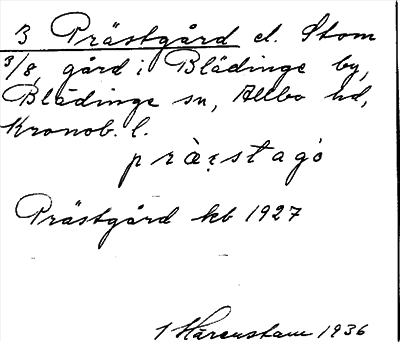 3 Prästgård el. Stom
3/8, gård i Blädinge by,
Blädinge sn, Allbo hd,
Kronob. l.
prà̀ꭋstagó
Prästgård kb 1927
1 Härenstam 1936